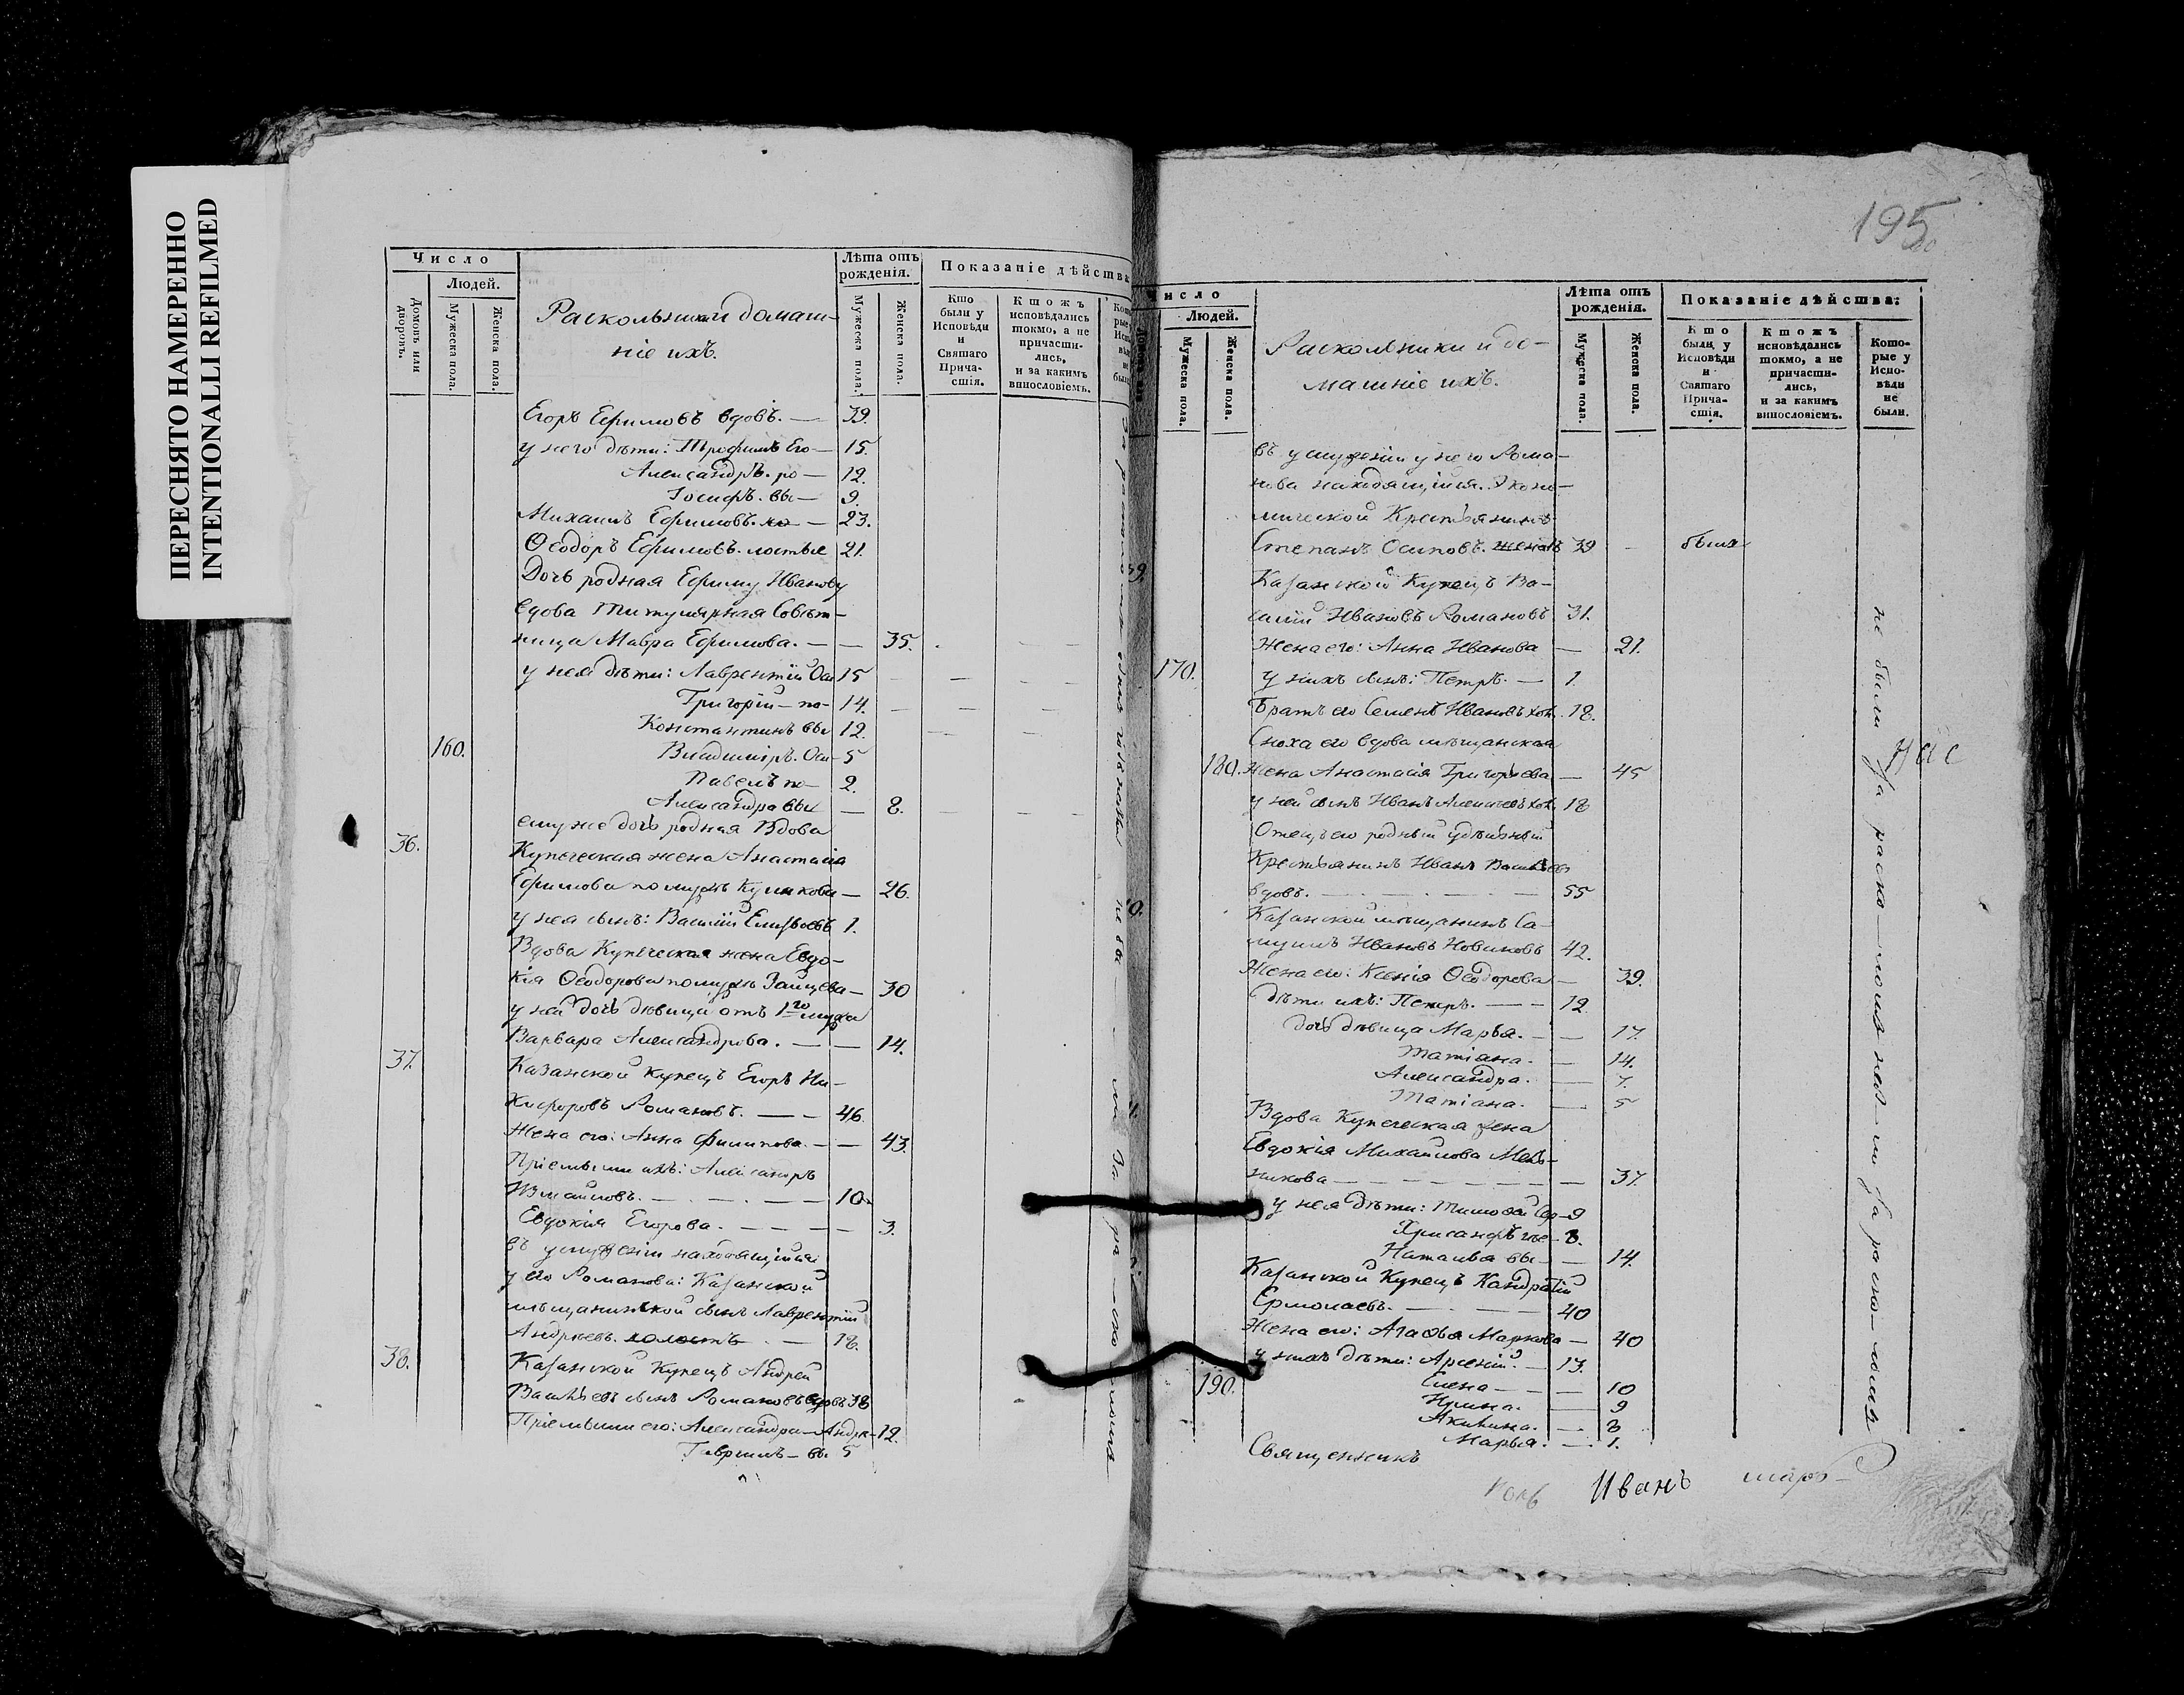 ПЕРЕСНЯТО НАМЕРЕННО
INTENTIONALLI REFILMED
Число
Людей.
Домовъ или дворовъ.
Мужеска пола.
Женска пола.
Раскольники домаш-
ніе ихъ.
Лѣта отъ рожденія.
Мужеска пола.
Женска пола.
Показаніе дѣйства
Кто были у Исповѣди и Святаго Прича-стія.
Ктожъ исповѣдались токмо, а не причасти-лись, и за какимъ винословіемъ.
Егоръ Ефимовъ вдовъ. — 39.
у него дѣти: Трофимъ Его— 15.
Александръ. ро — 12.
Іосифъ. вы — 9.
Михаилъ Ефимовъ. хо — 23.
Ѳеодоръ Ефимовъ. лостые 21.
Дочь родная Ефиму Иванову
вдова Титулярная Совѣт-
ница Мавра Ефимова. — — 35.
у нея дѣти: Лаврентій Оси 15
Григорій — по- 14.
Константинъ вы 12.
160. Владиміръ. Оси- 5
Павелъ по- 2.
Александра вы — 8.
36. ему же дочь родная Вдова
Купеческая жена Анастасія
Ефимова по мужѣ — 26.
у нея сынъ: Василій 1.
Вдова Купеческая жена Евдо-
кія Ѳеодорова по мужѣ Зайцева — 30
у ней дочь дѣвица отъ 1го мужа
Варвара Александрова. — — 14.
37. Казанской купецъ Егоръ Ни-
кифоровъ Романовъ. — — 46.
Жена его: Анна Филипова. — — 43.
Пріемыши ихъ: Александръ
Измайловъ. — — — 10.
Евдокія Егорова. — — — 3.
въ услуженіи находящійся
у его Романова: Казанской
мѣщанинской сынъ Лаврентій
Андреевъ. холостъ — 18.
38. Казанской Купецъ Андрей
Васильевъ сынъ Романовъ вдовъ 38
Пріемыши его: Александра — Андре- 12.
Гаврилъ — вы 5
195
Число
Людей.
Мужеска пола.
Женска пола.
Раскольники и до-
машніе ихъ.
Лѣта отъ рожденія.
Мужеска пола.
Женска пола.
Показаніе дѣйства:
Кто были у Исповѣди и Святаго Прича-стія.
Ктожъ исповѣдались токмо, а не причасти-лись, и за какимъ винословіемъ.
Кото-рые у Испо-вѣди не были.
въ услуженіи у него Рома-
нова находящійся. Эконо-
мической Крестьянинъ
Степанъ Осиповъ. женатъ 39 — былъ
Казанской Купецъ Ва-
силій Ивановъ Романовъ 31.
Жена его: Анна Иванова — 21.
170. у нихъ сынъ: Петръ. — 1.
Братъ его Семенъ Ивановъ хол. 18.
Сноха его вдова мѣщанская
180. Жена Анастасія Григорьева — 45
у ней сынъ Иванъ Алексѣевъ хол. 18
Отецъ его родный удѣльный
Крестьянинъ Иванъ Васильевъ
вдовъ. — — — 55
Казанской мѣщанинъ Са-
муилъ Ивановъ Новиковъ 42.
Жена его: Ксенія Ѳеодорова — 39.
дѣти ихъ: Петръ. — — 12
дочь дѣвица Марья. — — 17.
Татіана. — 14.
Александра. — 7.
Татіана. — 5
Вдова Купеческая жена
Евдокія Михайлова Мель-
никова — — — 37.
у нея дѣти: Тимоѳей Сер- 9
Хрисанфъ гѣе- 8.
Наталья вы — 14.
Казанской Купецъ Кандратій
Ермолаевъ. — — 40
Жена его: Агаѳья Маркова — 40
у нихъ дѣти: Арсеній. — 13.
190. Елена — — — 10
Ирина. — 9
Акилина. — 3
Марья. — 1.
не были за раско-
Священникъ
Иванъ